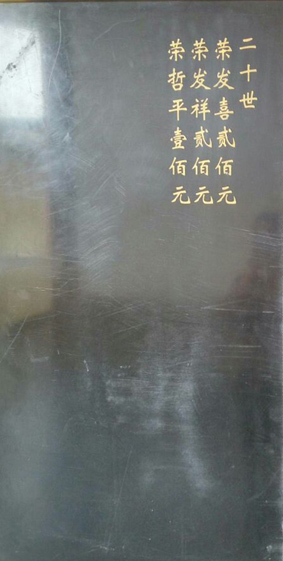 二十世
荣发喜贰佰元
荣发祥贰佰元
荣哲平壹佰元